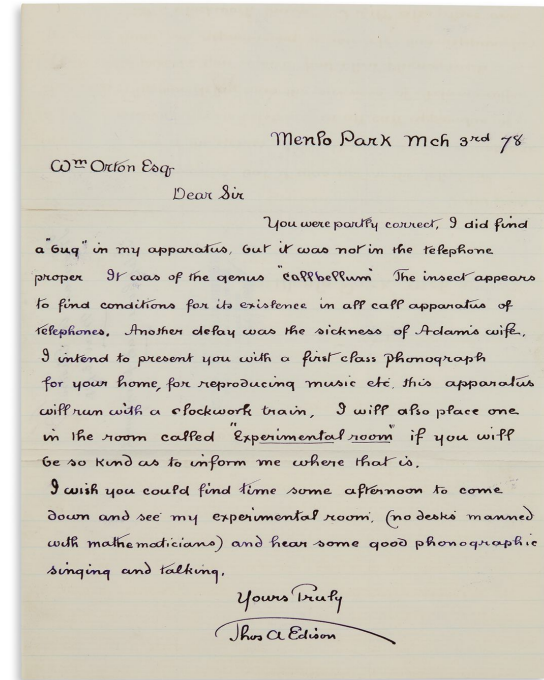 Menlo Park Mch 3rd 78
Wm Orton Esq
Dear Sir
You were partly correct, I did find
a "bug" in my apparatus, but it was not in the telephone
proper It was of the genus "callbellum" The insect appears
to find conditions for its existence in all call apparatus of
telephones. Another delay was the sickness of Adams wife,
I intend to present you with a first class phonograph
for your home, for reproducing music etc. this apparatus
will run with a clockwork train, I will also place one
in the room called "Experimental room" if you will
be so kind as to inform me where that is.
I wish you could find time some afternoon to come
down and see my experimental room, (no desks manned
with mathematicians) and hear some good phonographic
singing and talking.
Yours Truly
Thos A Edison